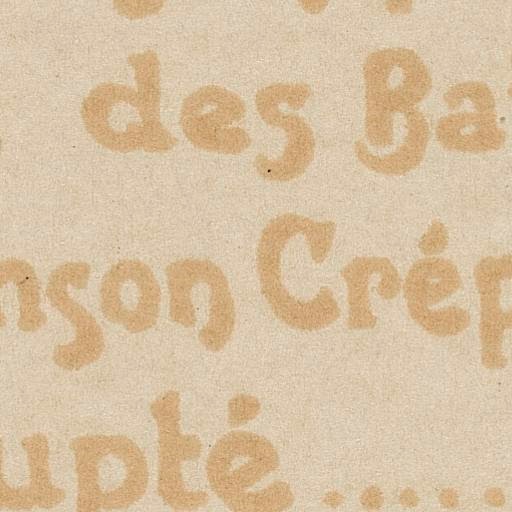 des Ba
nson Crép
upté .....